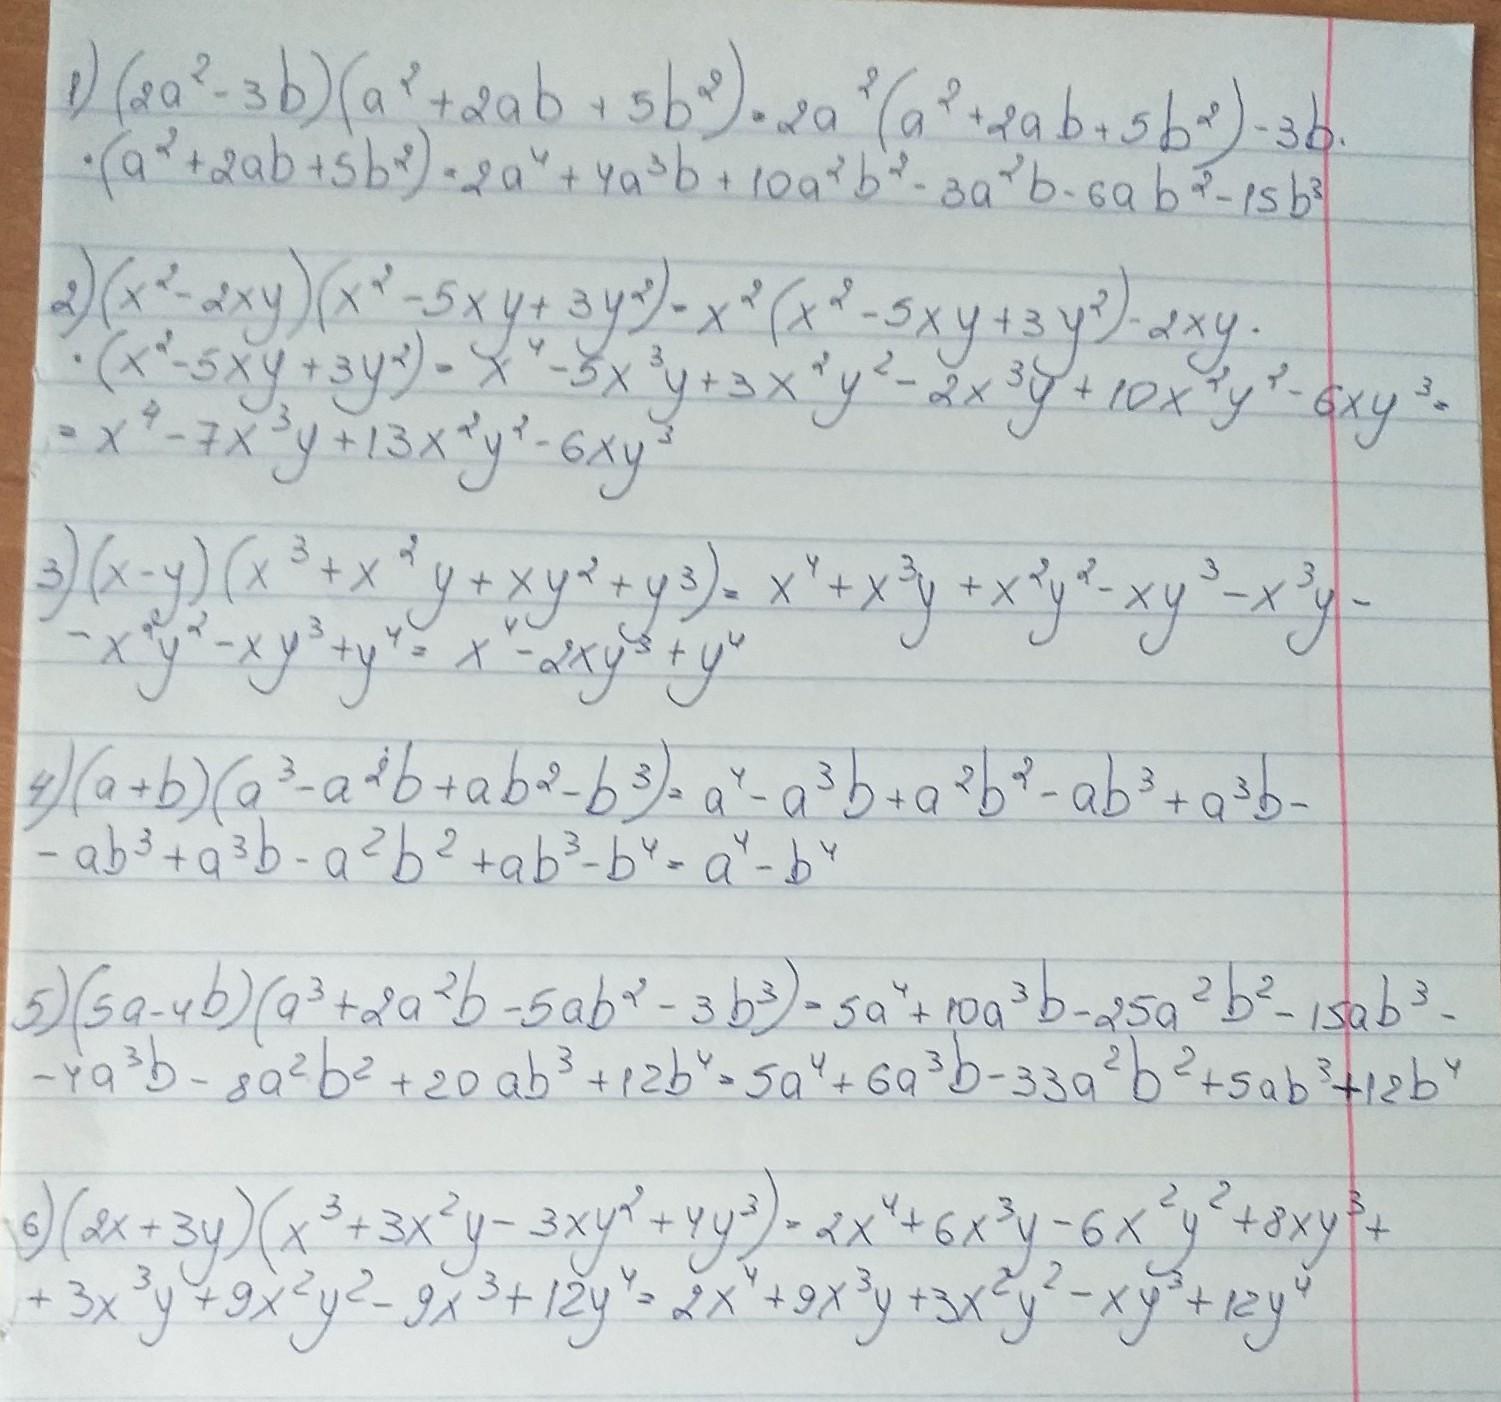 1) (2a² - 3b)(a² + 2ab + 5b²) = 2a²(a² + 2ab + 5b²) - 3b·
·(a² + 2ab + 5b²) = 2a⁴ + 4a³b + 10a²b² - 3a²b - 6ab² - 15b³
2) (x² - 2xy)(x² - 5xy + 3y²) = x²(x² - 5xy + 3y²) - 2xy·
·(x² - 5xy + 3y²) = x⁴ - 5x³y + 3x²y² - 2x³y + 10x²y² - 6xy³ =
= x⁴ - 7x³y + 13x²y² - 6xy³
3) (x - y)(x³ + x²y + xy² + y³) = x⁴ + x³y + x²y² - xy³ - x³y -
- x²y² - xy³ + y⁴ = x⁴ - 2xy³ + y⁴
4) (a + b)(a³ - a²b + ab² - b³) = a⁴ - a³b + a²b² - ab³ + a³b -
- ab³ + a³b - a²b² + ab³ - b⁴ = a⁴ - b⁴
5) (5a - 4b)(a³ + 2a²b - 5ab² - 3b³) = 5a⁴ + 10a³b - 25a²b² - 15ab³ -
- 4a³b - 8a²b² + 20ab³ + 12b⁴ = 5a⁴ + 6a³b - 33a²b² + 5ab³ + 12b⁴
6) (2x + 3y)(x³ + 3x²y - 3xy² + 4y³) = 2x⁴ + 6x³y - 6x²y² + 8xy³ +
+ 3x³y + 9x²y² - 9x³ + 12y⁴ = 2x⁴ + 9x³y + 3x²y² - xy³ + 12y⁴